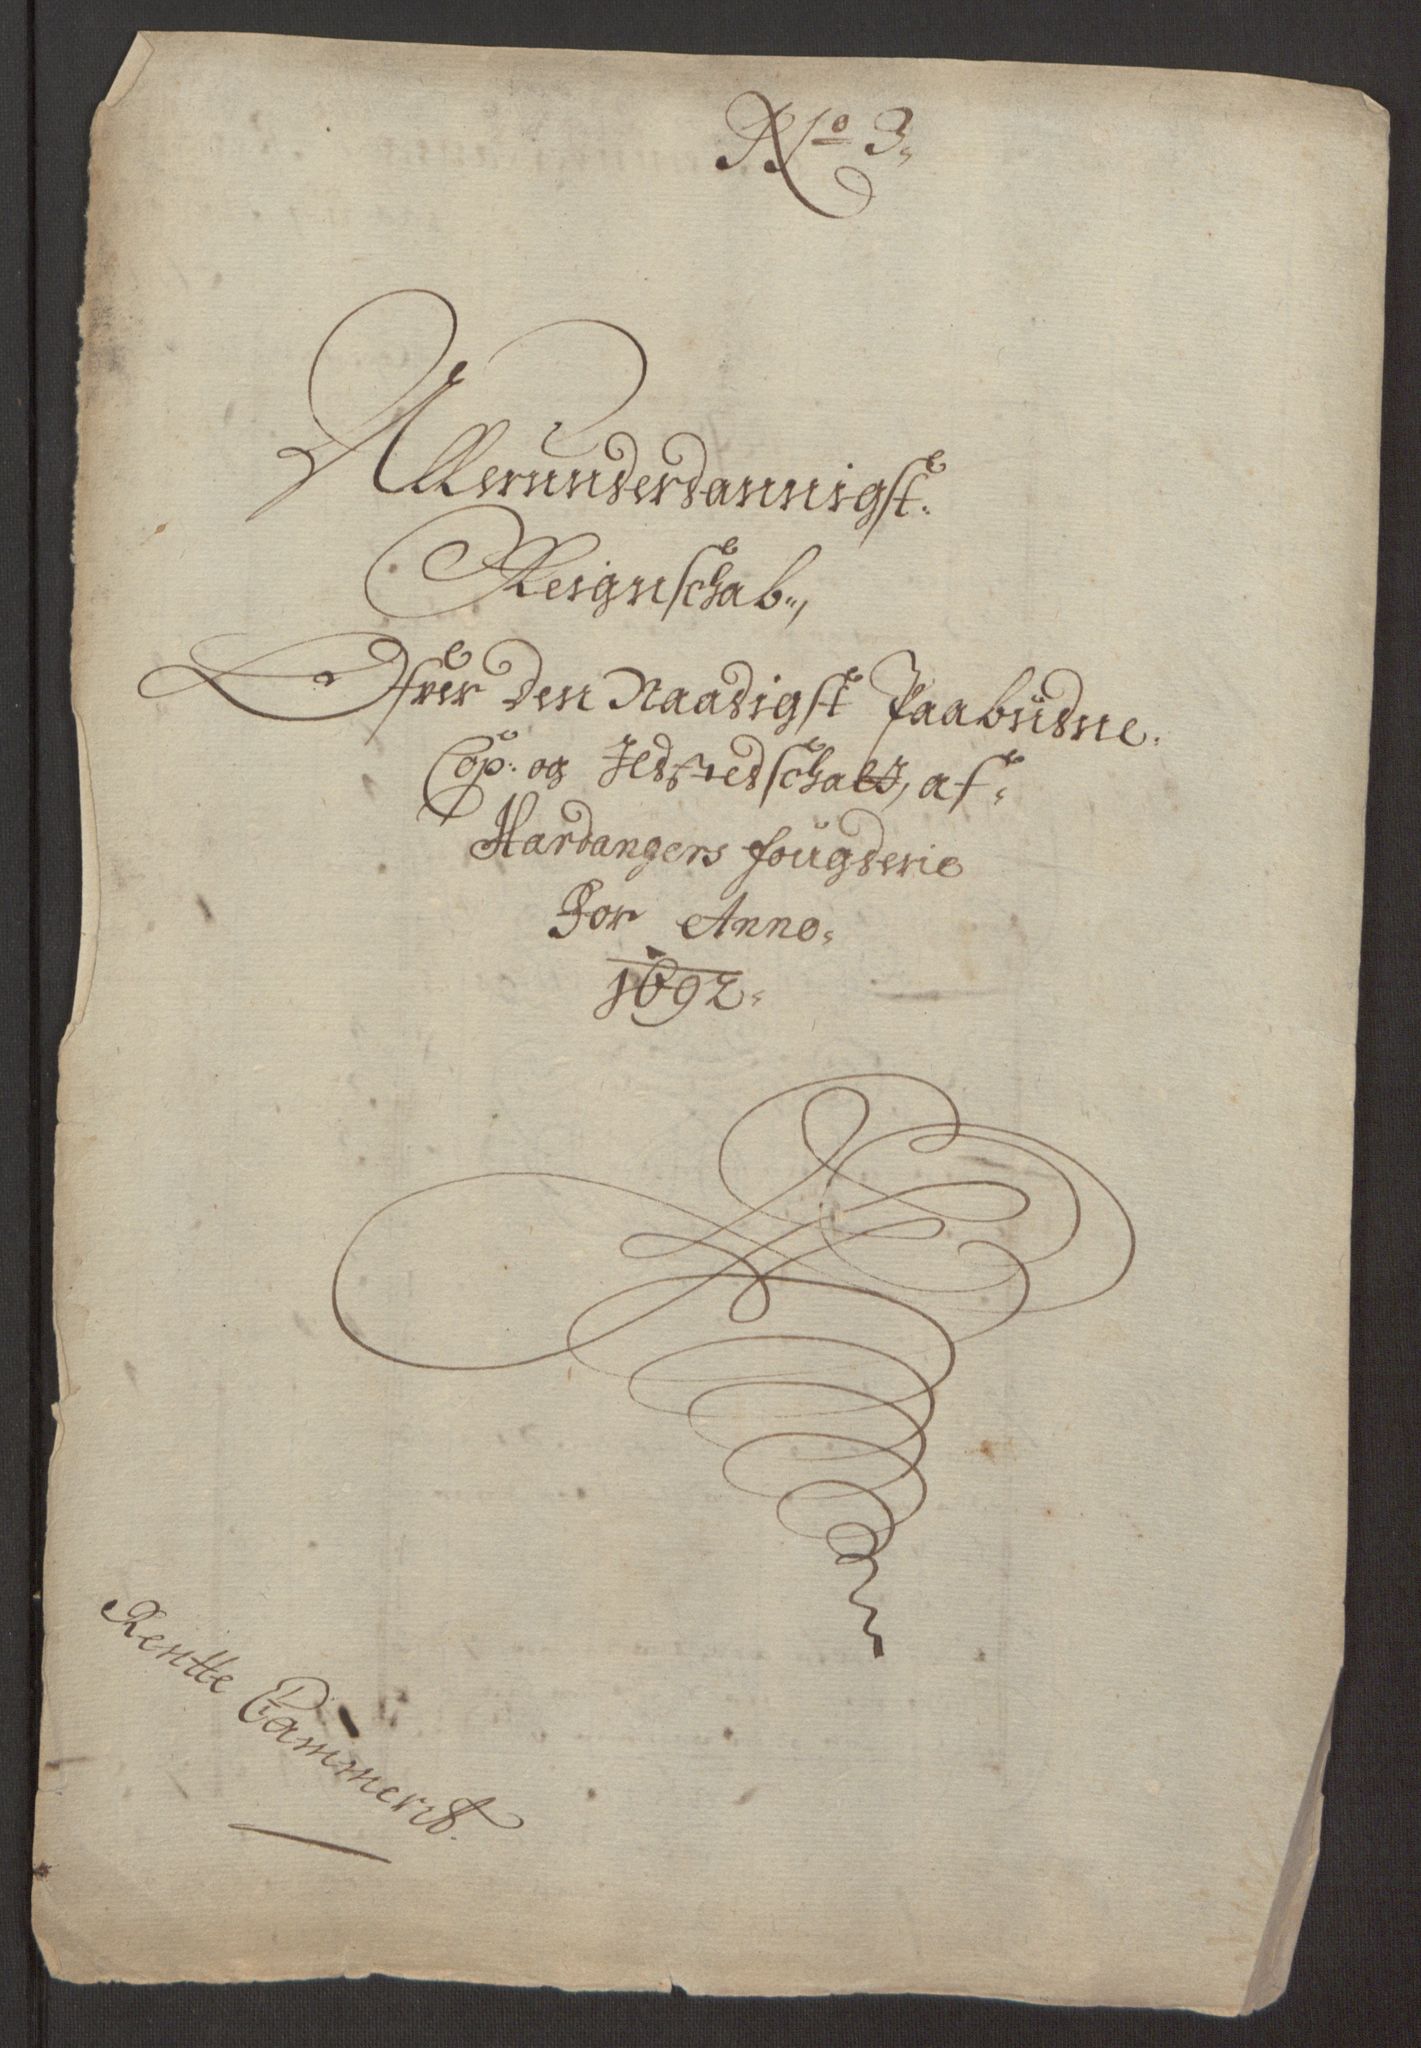 No 3.
Allerunderdannigst.
Reignschab.,
Ofver den Naadigst Paabudne.
Cop: og Ildstedschatt, af.
Hardangers fougderie
For Anno.
1692.
Rentte Cammerit.